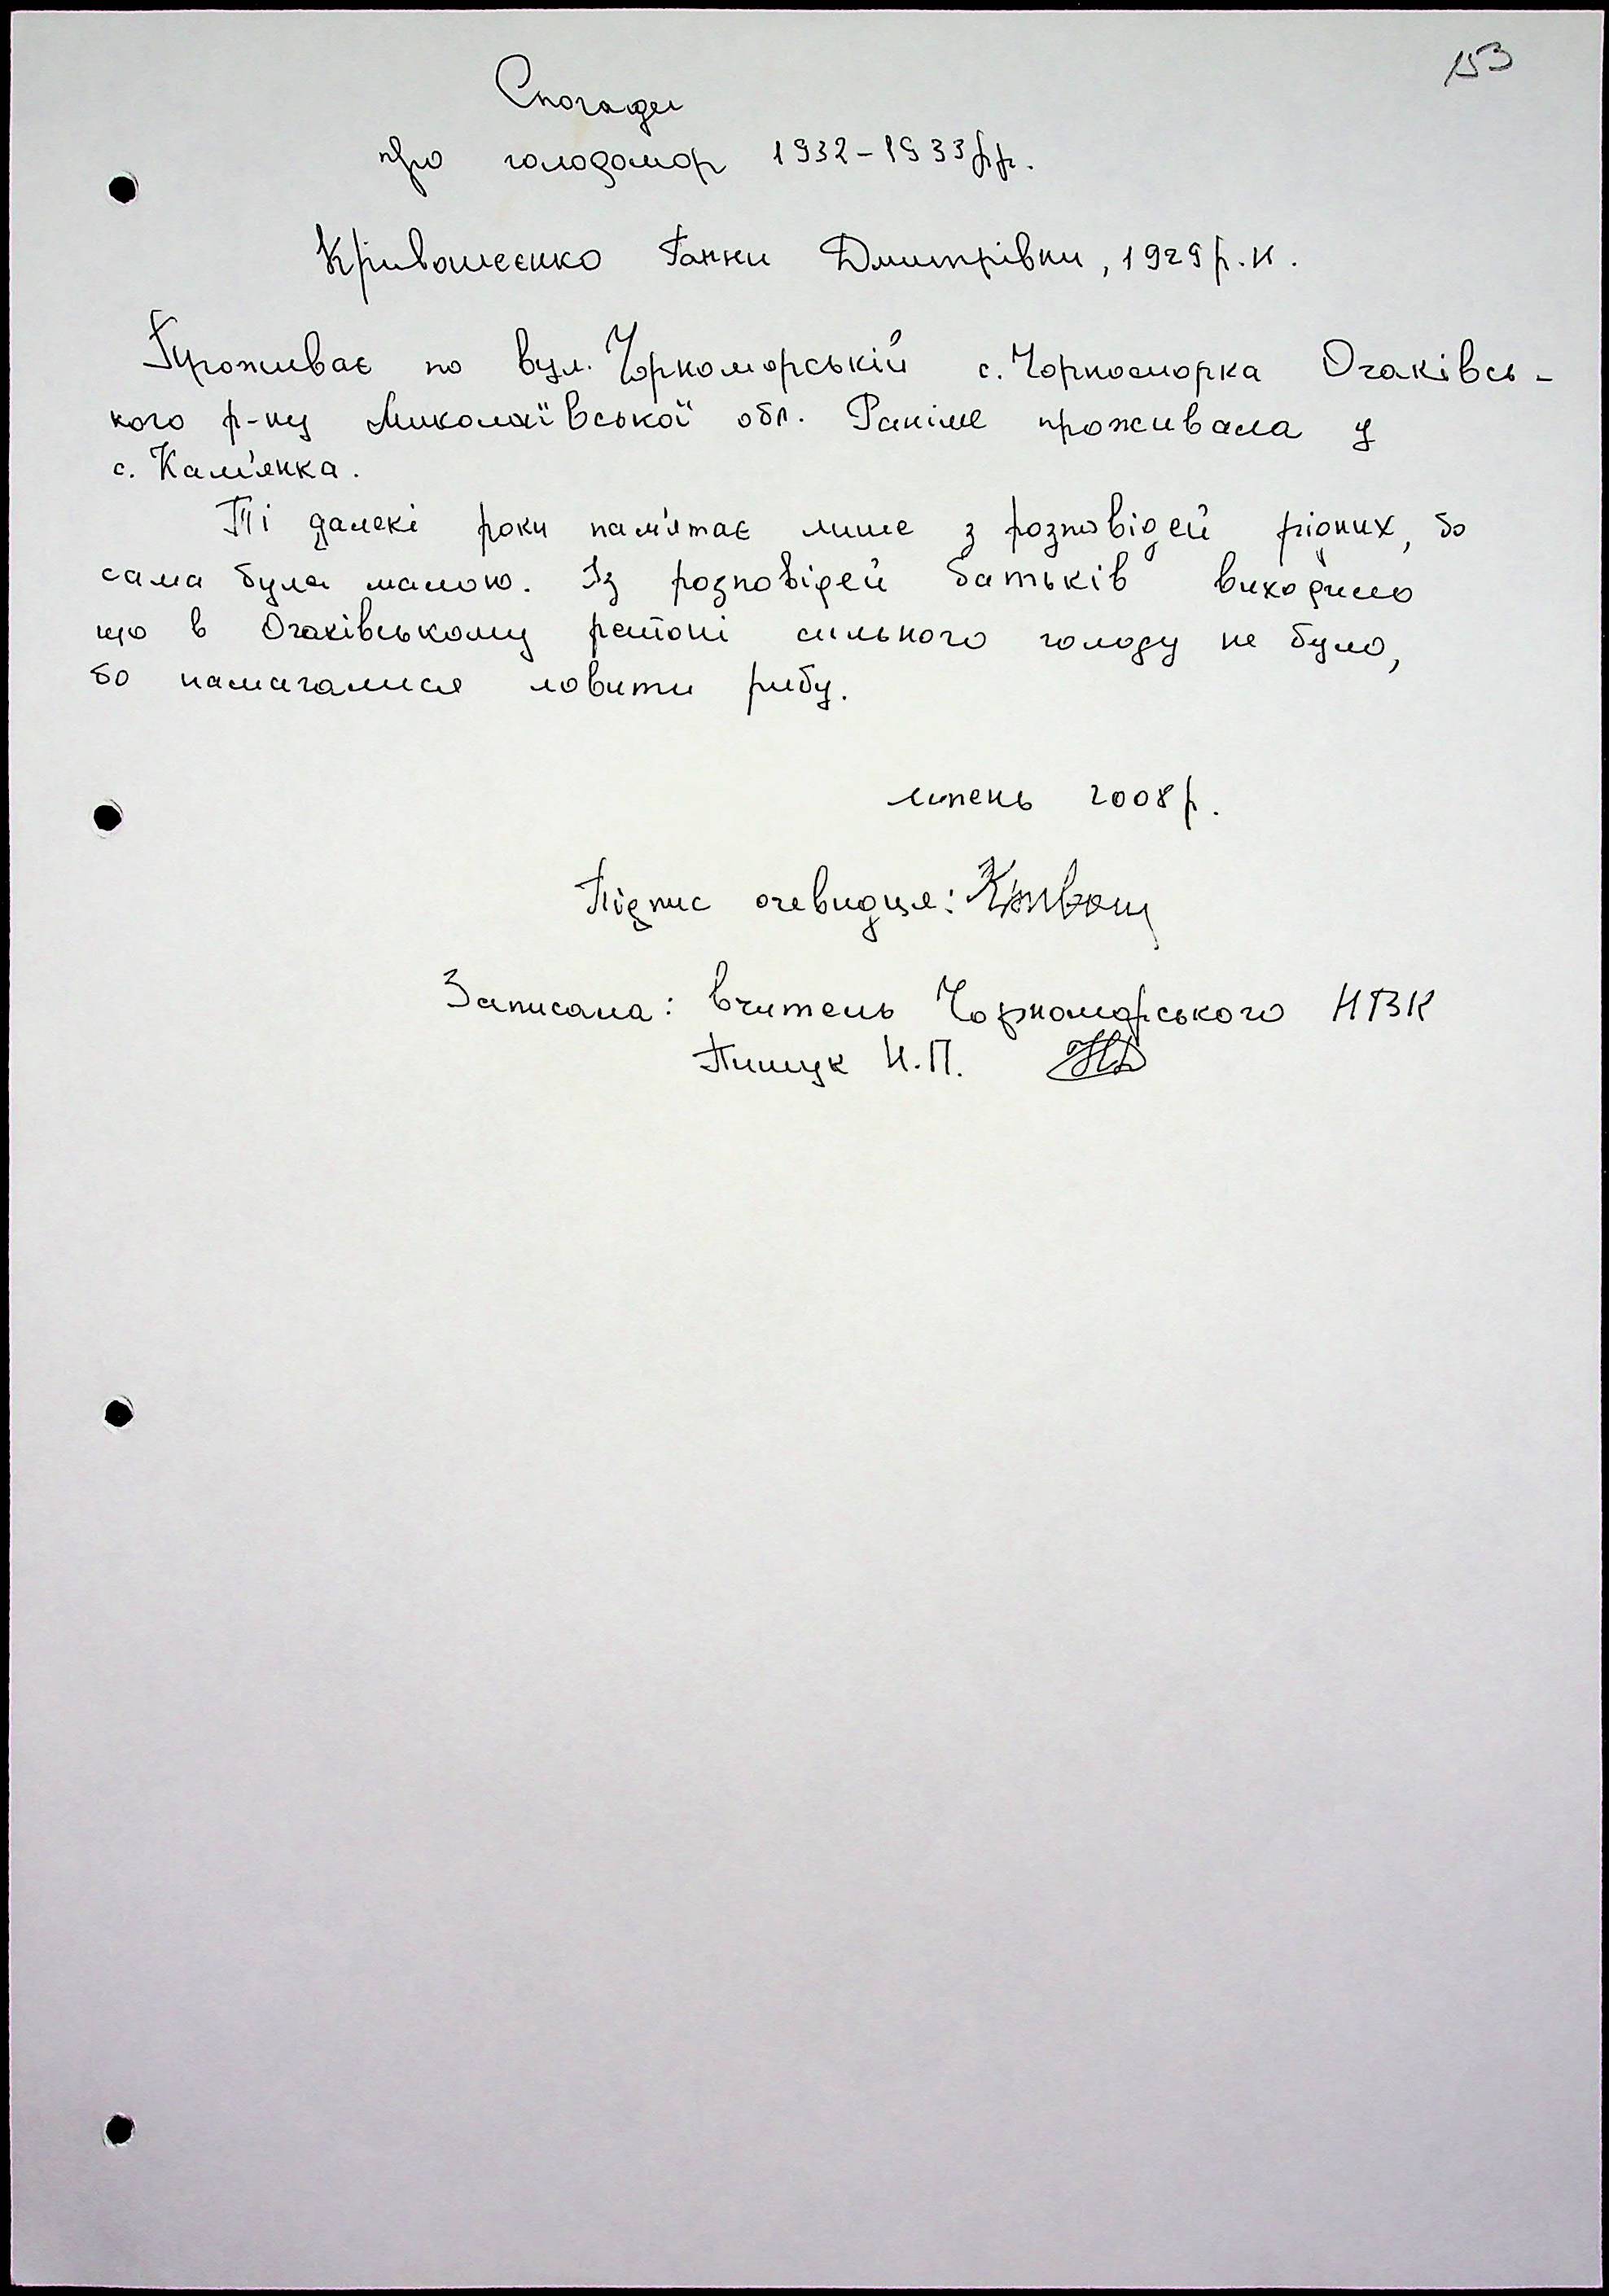 153
Спогади
про голодомор 1932-1933 рр.
Кривошеєнко Ганни Дмитрівни, 1929 р.н.
Проживає по вул. Чорноморській с. Чорноморка Очаківсь-
кого р-ну Миколаївської обл. Раніше проживала у
с. Кам'янка.
Ті далекі роки пам'ятає лише з розповідей рідних, бо
сама була малою. Із розповідей батьків виходило
що в Очаківському районі сильного голоду не було,
бо намагалися ловити рибу.
липень 2008 р.
Підпис очевидця: Кривош
Записала: вчитель Чорноморського НВК
Пищук Н.П.